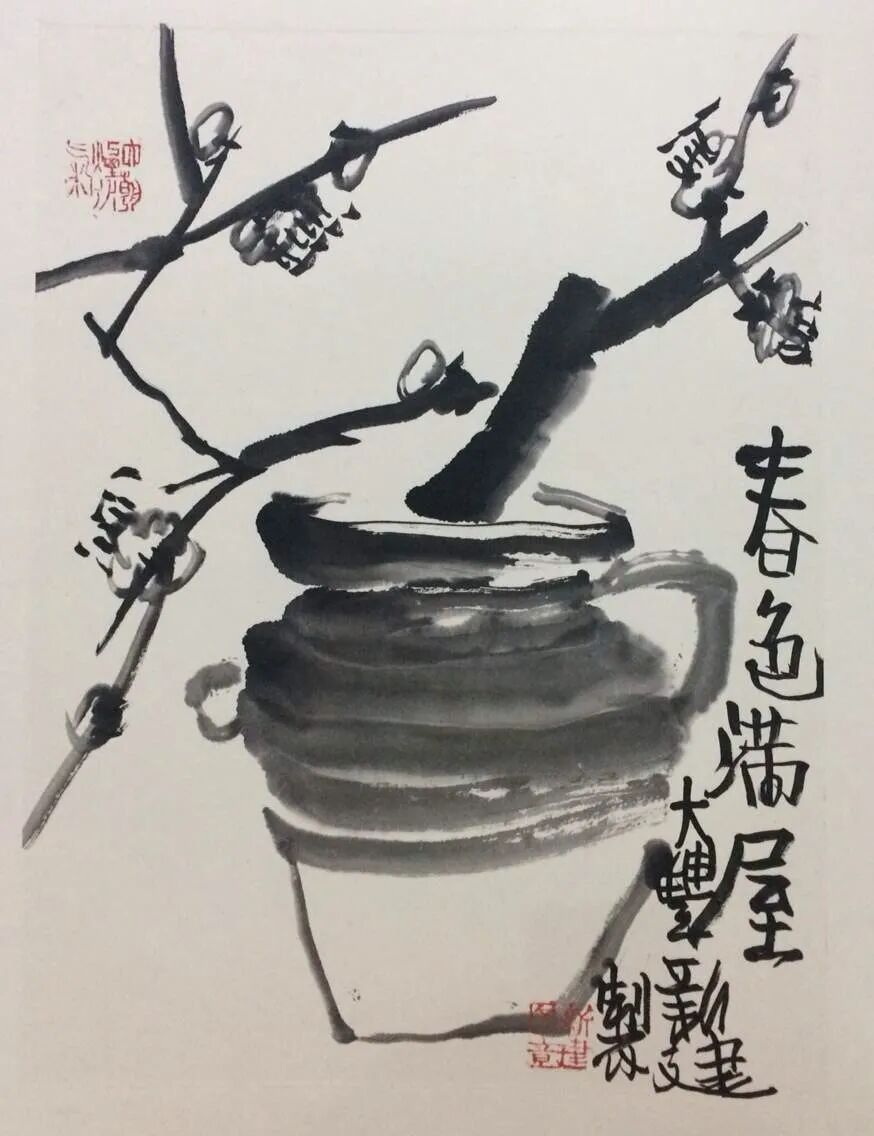 春色满屋
大豐新建
製
新建